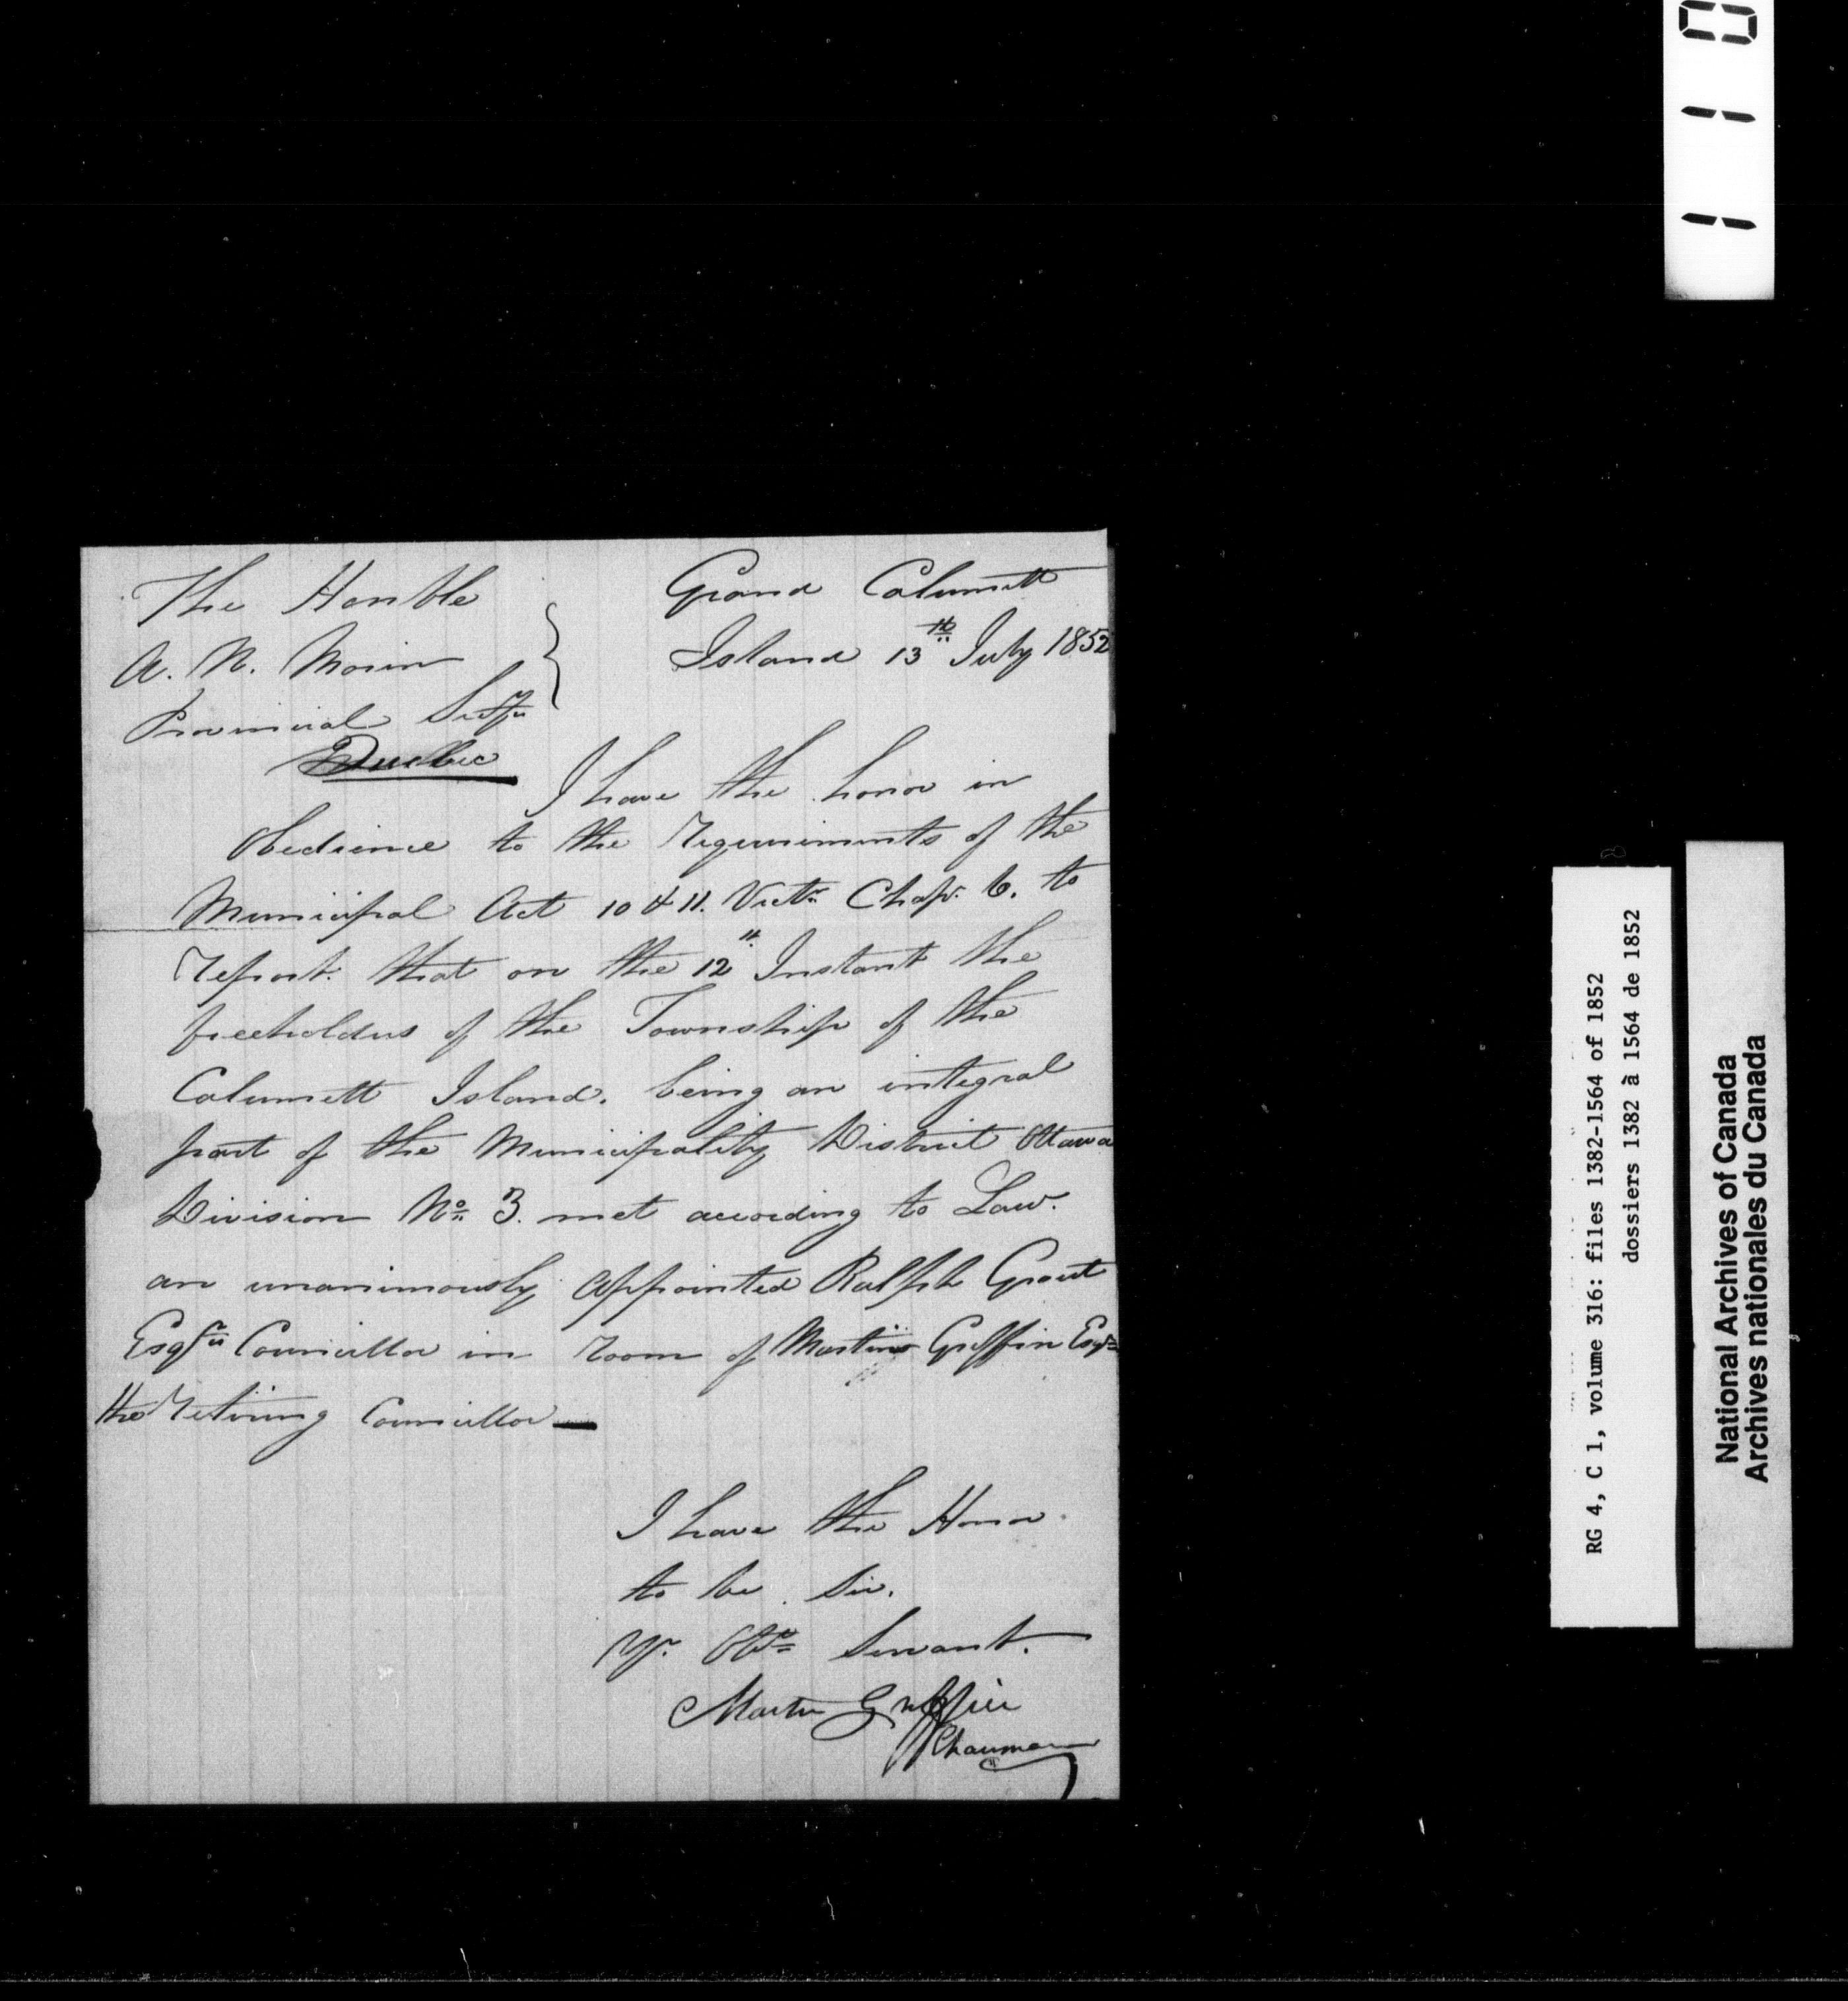 The Honble
A. N. Morin
Provincial Secty
Quebec
Grand Calumett
Island 13th July 1852
I have the honor in
Obedience to the Requirements of the
Municipal Act 10 & 11. Victa Chap. 6. to
Report. that on the 12th Instant the
freeholders of the Township of the
Calumett Island. being an integral
part of the Municipality District Ottawa
Division No 3. met according to Law.
an unanimously appointed Ralph Grant
Esqre Councillor in room of Martin Griffin Esqr
the Retiring Councillor —
I have the Honor
to be Sir.
Yr. Obt Servant.
Martin Griffin
Chairman
110
RG 4, C 1, volume 316: files 1382-1564 of 1852
dossiers 1382 à 1564 de 1852
National Archives of Canada
Archives nationales du Canada